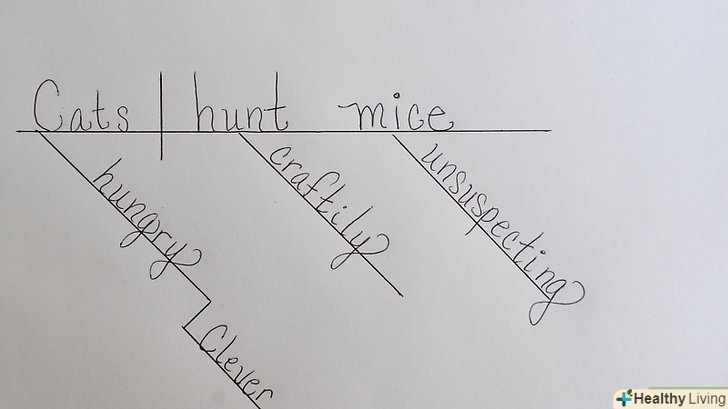 Cats hunt mice
hungry
craftily
unsuspecting
Clever
Healthy Living